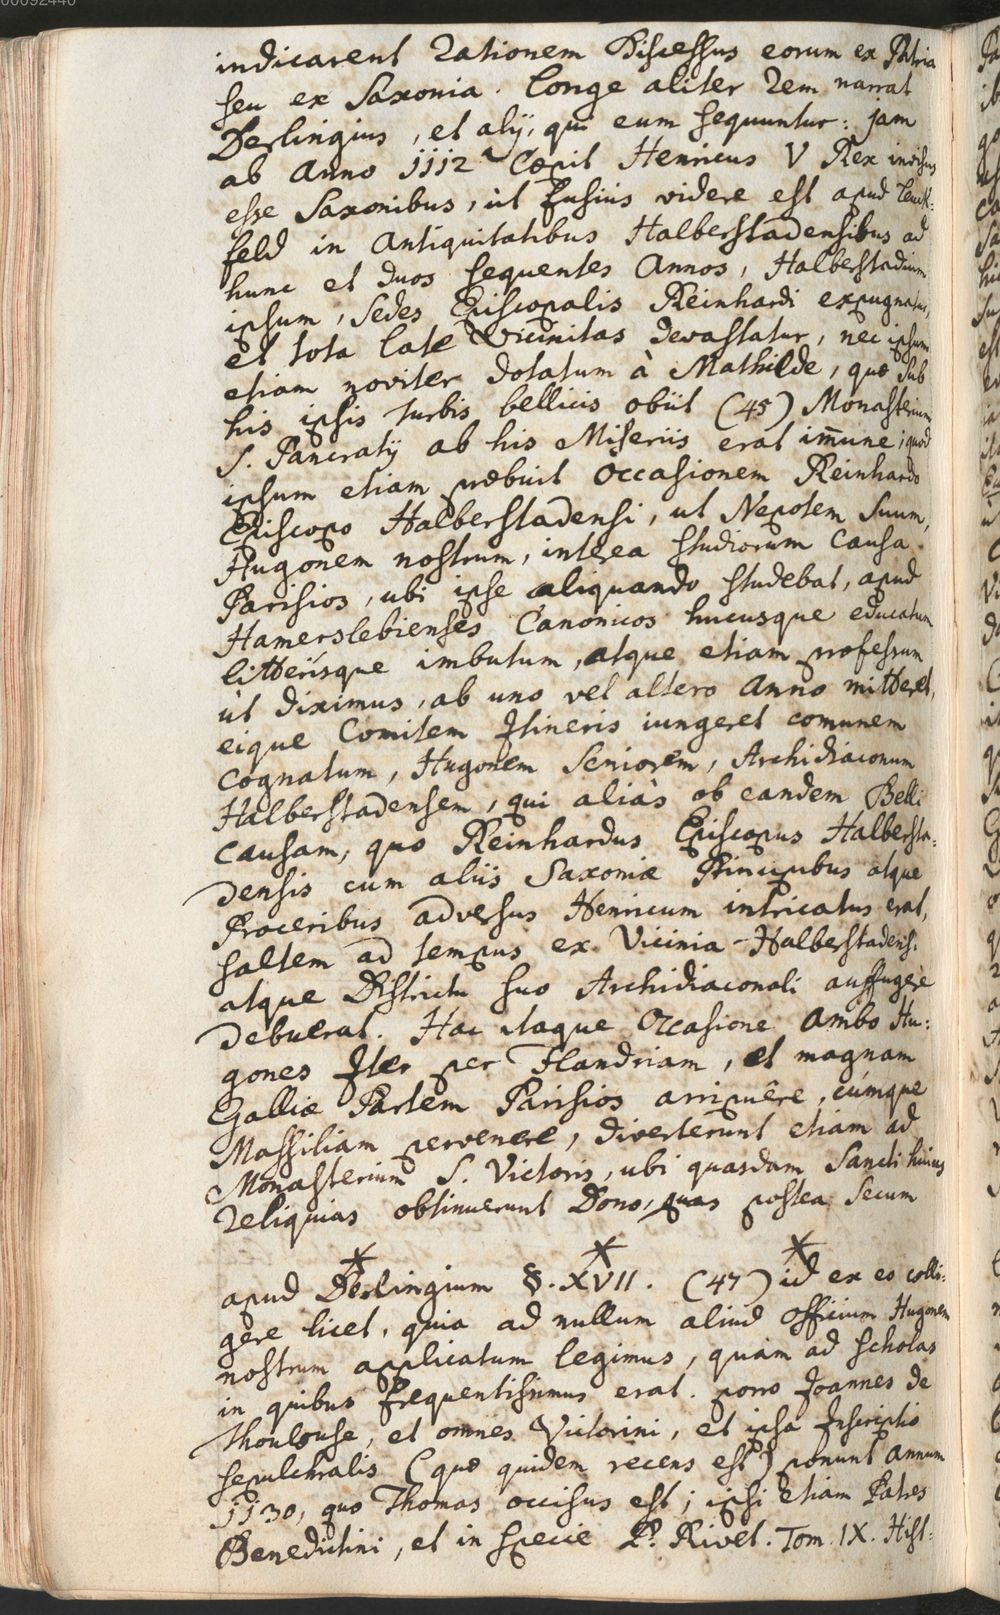 00092440
indicarent Rationem Discessus eorum ex Patria
seu ex Saxonia. Longe aliter Rem narrat
Derlingius, et alÿ, qui eum sequuntur: jam
ab Anno 1112 Cœpit Henricus V Rex invisus
esse Saxonibus, ut fusius videre est apud Leuck=
feld in Antiquitatibus Halberstadensibus ad
hunc et duos sequentes Annos, Halberstadium
ipsum, Sedes Episcopalis Reinhardi expugnatur,
et tota late Vicinitas devastatur, nec ipsum
etiam noviter dotatum à Mathilde, quæ sub
his ipsis turbis bellicis obiit (45) Monasterium
S. Pancratÿ ab his Miseriis erat im̄une; quod
ipsum etiam præbuit Occasionem Reinhardo
Episcopo Halberstadensi, ut Nepotem Suum,
Hugonem nostrum, interea studiorum Causa
Parisios, ubi ipse aliquando studebat, apud
Hamerslebienses Canonicos hucusque educatum
litterisque imbutum, atque etiam professum
ut diximus, ab uno vel altero Anno mitteret,
eique Comitem Itineris iungeret comunem
cognatum, Hugonem Seniorem, Archidiaconum
Halberstadensem, qui aliàs ob eandem Belli
causam, quo Reinhardus Episcopus Halbersta=
densis cum aliis Saxoniæ Principibus atque
Proceribus adversus Henricum intricatus erat,
saltem ad tempus ex Vicinia Halberstadensi
atque Districtu suo Archidiaconali auffugere
debuerat. Hac itaque Occasione Ambo Hu=
gones Iter per Flandriam, et magnam
Galliæ Partem Parisios arripuêre, cùmque
Massiliam pervenere, diverterunt etiam ad
Monasterium S. Victoris, ubi quasdam Sancti huius
Reliquias obtinuerunt Dono, quas postea secum
apud Derlingium §. XVII. (47) id ex eo colli=
gere licet, quia ad nullum aliud officium Hugonem
nostrum applicatum legimus, quàm ad scholas
in quibus frequentissimus erat. porro Joannes de
Thoulouse, et omnes Victorini, et ipsa Inscriptio
sepulchralis (quæ quidem recens est) ponunt annum
1130, quo Thomas occisus est; ipsi etiam Patres
Benedictini, et in specie P. Rivet. Tom. IX. Hist=